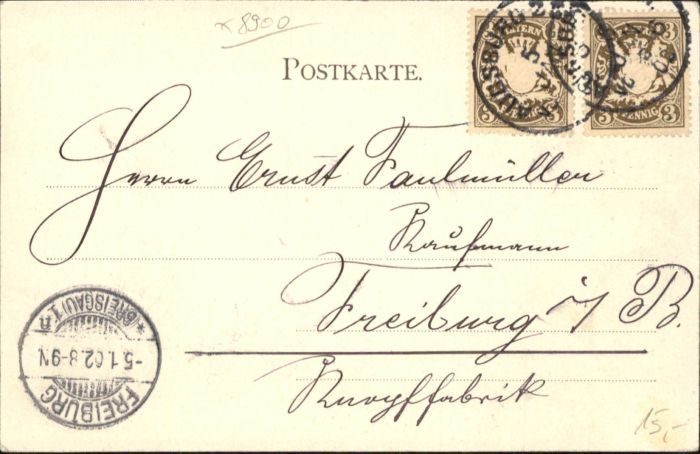 x 8900
POSTKARTE.
BAYERN
3 3
PFENNIG
3 3
PFENNIG
AUGSBURG 2
Herrn Ernst Faulmüller
Kaufmann
Freiburg i/B.
Knopffabrik
FREIBURG
-5.1.02.8-9N
* (BREISGAU) 1 n
15,-